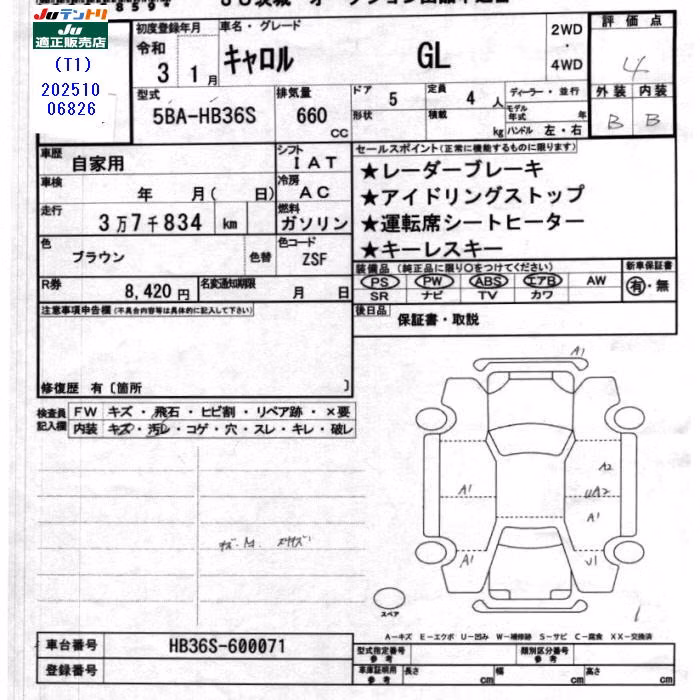 JU テントリ
JU
適正販売店
(T1)
202510
06826
初度登録年月
令和
3 1月
車名・グレード
キャロル GL
2WD
・
4WD
評価点
4
外装 内装
B B
型式
5BA-HB36S
排気量
660
cc
ドア
5
定員
4 人
形状
積載
kg
ディーラー・並行
モデル
年式
年
ハンドル 左・右
車歴
自家用
シフト
IAT
車検
年 月( 日)
冷房
AC
走行
3万7千834 km
燃料
ガソリン
色
ブラウン
色替
色コード
ZSF
R券
8,420円
名変通知期限
月 日
セールスポイント(正常に機能するものに限ります)
★レーダーブレーキ
★アイドリングストップ
★運転席シートヒーター
★キーレスキー
装備品(純正品に限り○をつけてください)
新車保証書
PS PW ABS エアB AW
SR ナビ TV カワ
有・無
後日品
保証書・取説
注意事項申告欄(不具合内容等は具体的に記入して下さい)
修復歴 有〔箇所 〕
検査員
記入欄
FW キズ・飛石・ヒビ割・リペア跡・×要
内装 キズ・汚レ・コゲ・穴・スレ・キレ・破レ
A1
A1
A2
UA2
A1
A1
U1
スペア
A-キズ E-エクボ U-凹み W-補修跡 S-サビ C-腐食 XX-交換済
車台番号
HB36S-600071
登録番号
型式指定番号
参考
類別区分番号
参考
車庫証明用
参考
長さ
cm
幅
cm
高さ
cm